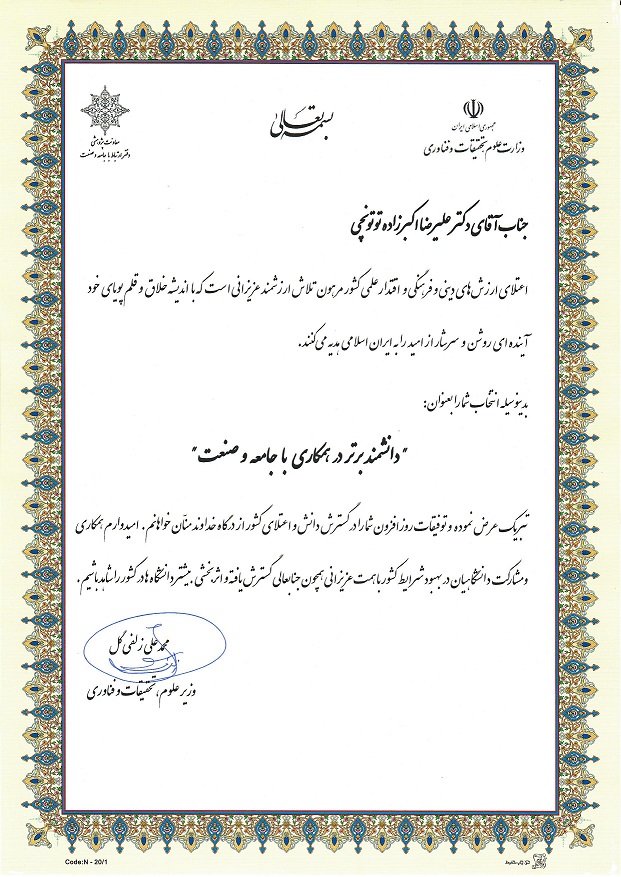 بسمه تعالی
جمهوری اسلامی ایران
وزارت علوم تحقیقات و فناوری
معاونت پژوهشی
دفتر ارتباط با جامعه و صنعت
جناب آقای دکتر علیرضا اکبرزاده توتونچی
اعتلای ارزش های دینی و فرهنگی و اقتدار علمی کشور مرهون تلاش ارزشمند عزیزانی است که با اندیشه خلاق و قلم پویای خود
آینده ای روشن و سرشار از امید را به ایران اسلامی هدیه می کنند.
بدینوسیله انتخاب شما را بعنوان:
"دانشمند برتر در همکاری با جامعه و صنعت"
تبریک عرض نموده و توفیقات روز افزون شما را در گسترش دانش و اعتلای کشور از درگاه خداوند منّان خواهانم. امیدوارم همکاری
و مشارکت دانشگاهیان در بهبود شرایط کشور با همت عزیزانی همچون جنابعالی گسترش یافته و اثربخشی بیشتر دانشگاه ها در کشور را شاهد باشیم.
محمد علی زلفی گل
وزیر علوم، تحقیقات و فناوری
Code:N - 20/1